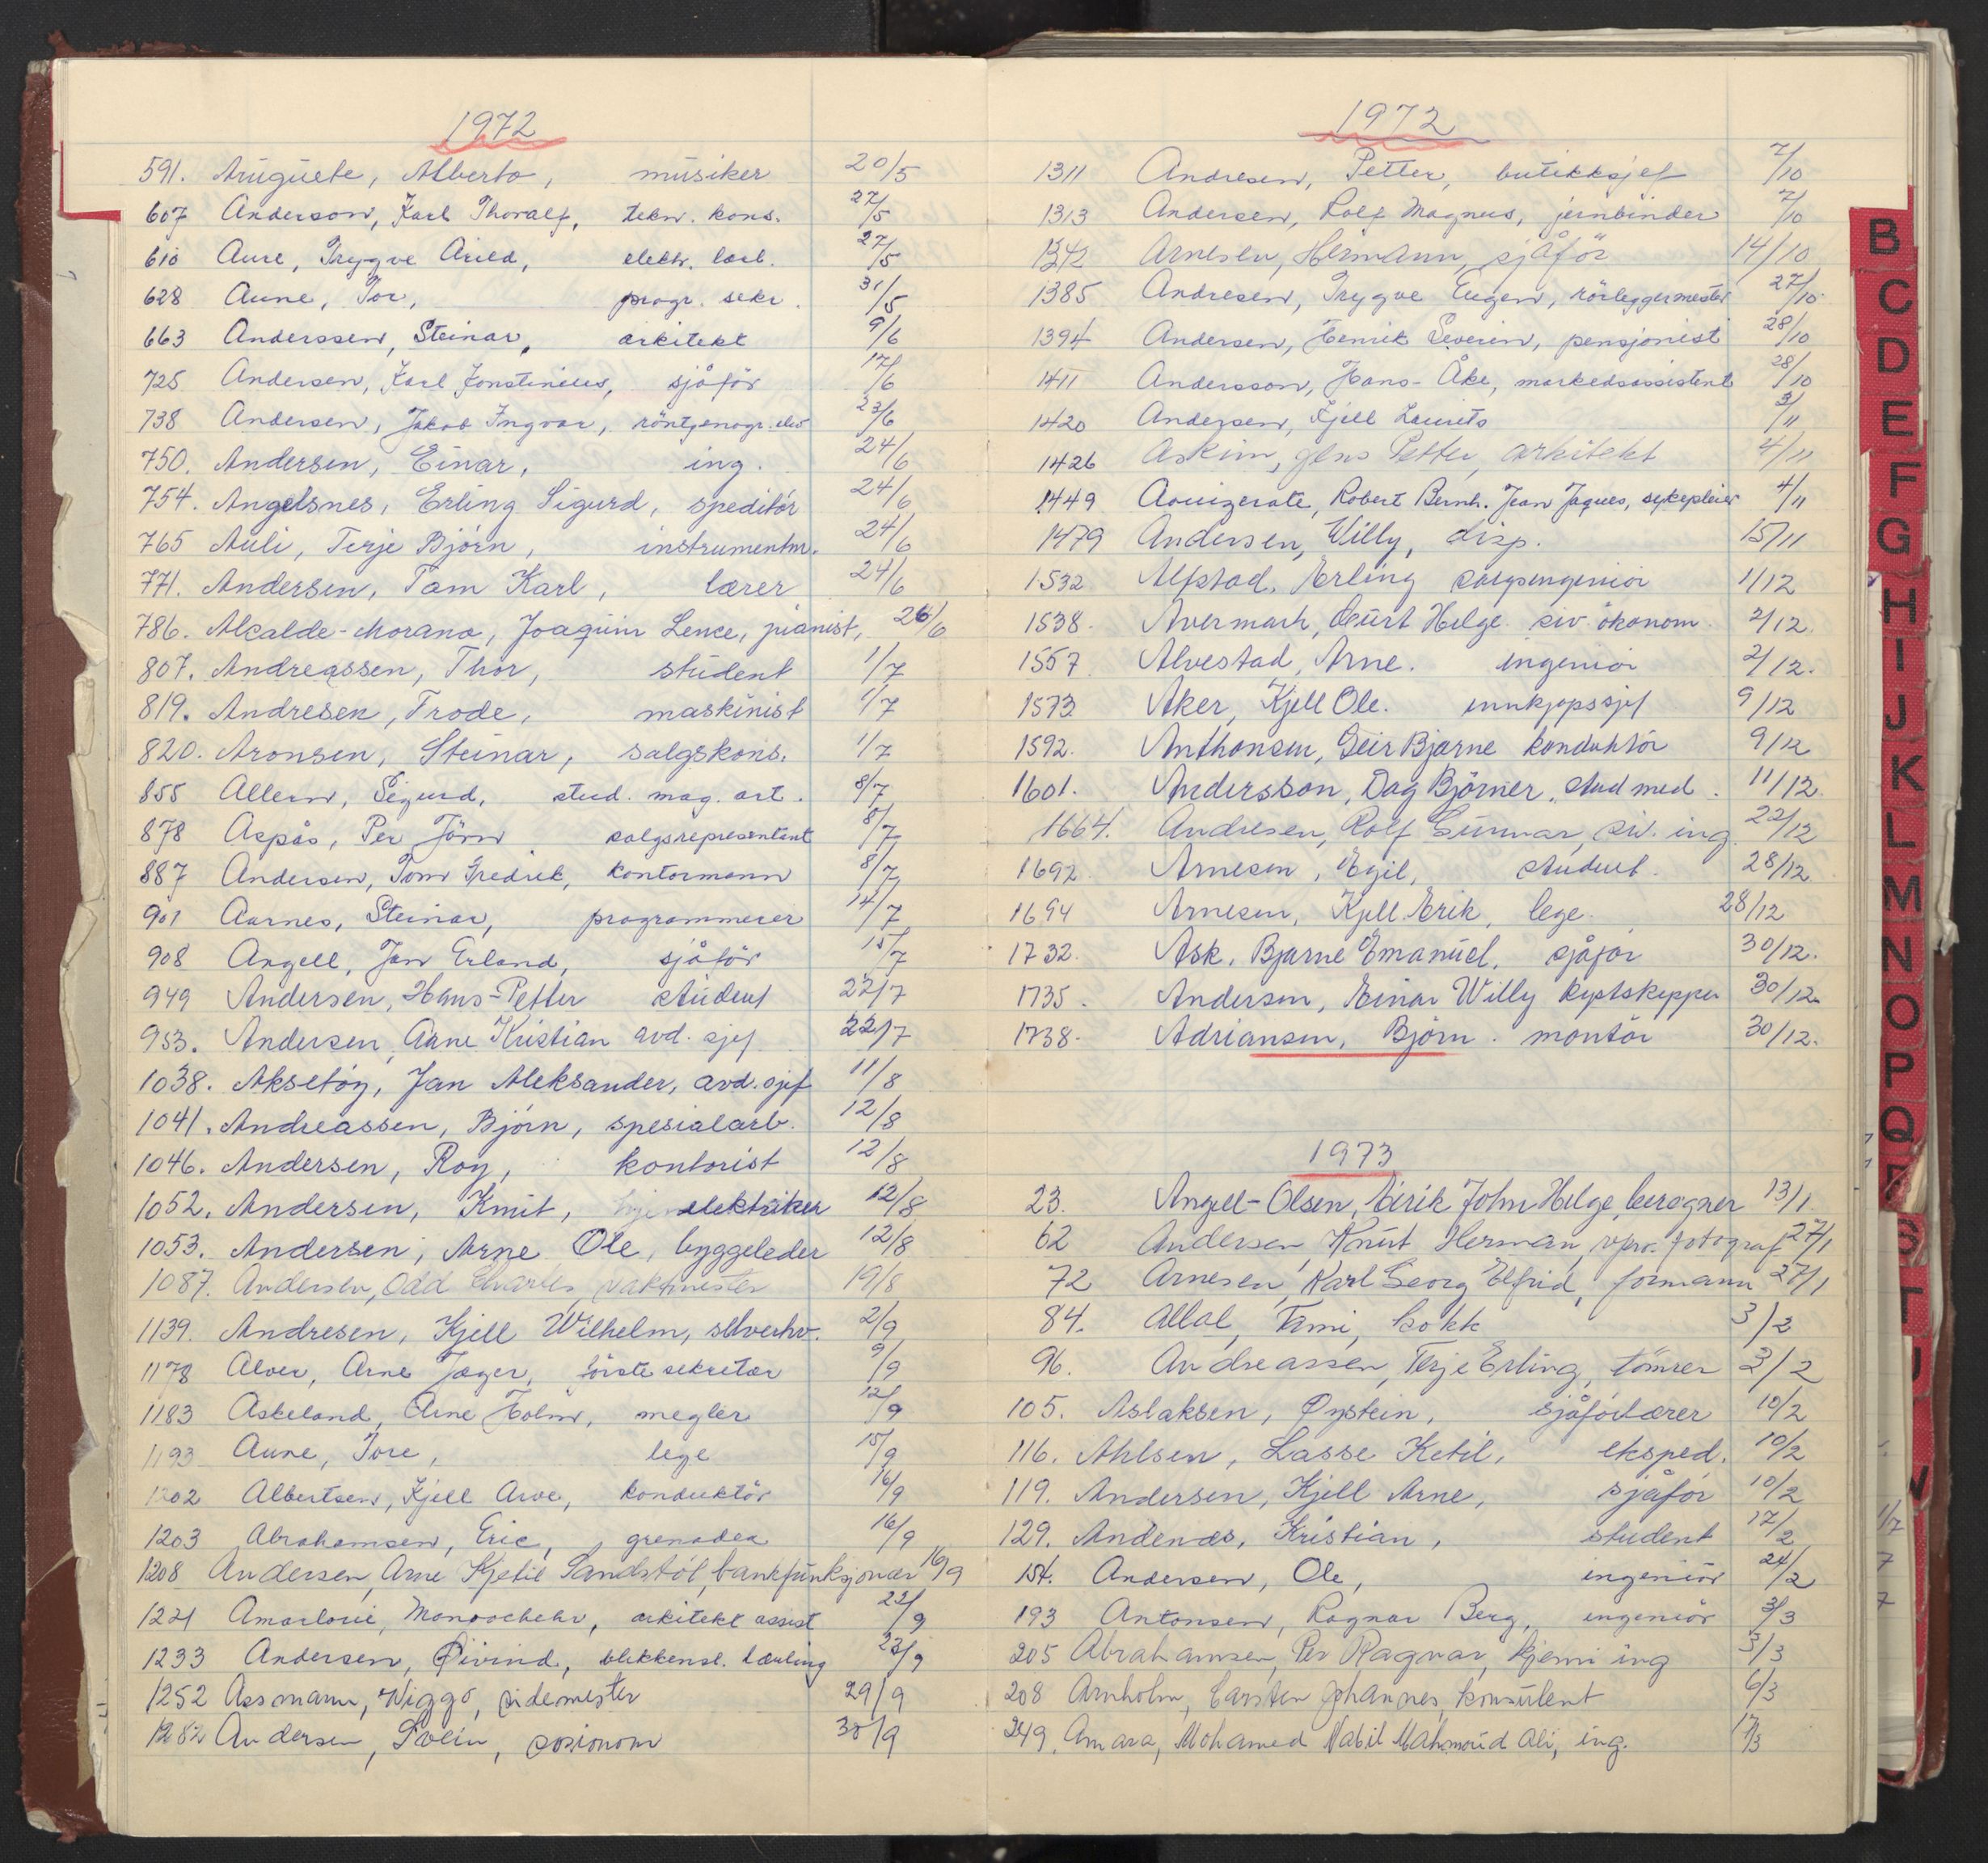 1972
591. Auguete, Alberto, musiker 20/5
607 Anderson, Karl Thoralf, tekn. kons. 27/5
610 Aure, Trygve Arild, elektr. 27/5
628 Aune, Tor, progr. sekr. 31/5
663 Anderssen, Steinar, arkitekt 9/6
725 Andersen, Karl sjåför 17/6
738 Andersen, Jakob Ingvar, röntgenogr. elev 23/6
750. Andersen, Einar, ing. 24/6
754. Angelsnes, Erling Sigurd, speditör 24/6
765 Auli, Terje Björn, instrumentm. 24/6
771. Andersen, Tom Karl, lærer 24/6
786. Alcalde-Morano, Joaquim Lence, pianist, 26/6
807. Andreassen, Thor, student 1/7
819. Andresen, Frode, maskinist 1/7
820. Aronsen, Steinar, salgskons. 1/7
855 Allern, Sigurd, stud. mag. art. 8/7
878 Aspås, Per Jörn salgsrepresentant 8/7
887 Andersen, Tom Fredrik, kontormann 8/7
901 Aarnes, Steinar, programmerer 14/7
908 Angell, Jan Erland, sjåför 15/7
949 Andersen, Hans-Petter student 22/7
953. Andersen, Arne Kristian avd. sjef 22/7
1038. Aksetöy, Jan Aleksander, avd. sjef 11/8
1041. Andreassen, Björn, spesialarb. 12/8
1046. Andersen, Roy, kontorist 12/8
1052. Andersen, Knut, elektriker 12/8
1053. Andersen, Arne Ole, byggeleder 12/8
1087. Andersen, Odd Charles, vaktmester 19/8
1139. Andresen, Kjell Wilhelm, selverhv. 2/9
1178 Alver, Arne Jæger, förstesekretær 9/9
1183 Askeland, Arne Holm, megler 12/9
1193 Aune, Tore, lege 15/9
1202 Albertsen, Kjell Arve, konduktör 16/9
1203 Abrahamsen, Eric, grenader 16/9
1208 Andersen, Arne Kjetil Sandstöl, bankfunksjonær 16/9
1221 Manoochehr, arkitekt assist 22/9
1233 Andersen, Öivind, blikkensl. lærling 23/9
1252 Assmann, Wiggo, sidemester 29/9
1282 Andersen, Svein, sosionom 30/9
1972
1311 Andresen, Petter, butikksjef 7/10
1313 Andersen, Rolf Magnus, jernbinder 7/10
1342 Arnesen, Hermann, sjåför 14/10
1385 Andresen, Trygve Eugen, rörleggermester 27/10
1394 Andersen, Henrik Severin, pensjonist 28/10
1411 Andersson, Hans-Åke, markedsassistent 28/10
1420 Andersen, Kjell Laurits 3/11
1426 Askim, Jens Petter, arkitekt 4/11
1449 Aouizerate, Robert Bernh. Jean Jaques, sykepleier 4/11
1479 Andersen, Willy, disp. 15/11
1532 Alfstad, Erling salgsingeniör 1/12
1538. Avermarh, Curt Helge siv. ökonom 2/12.
1557 Alvestad, Arne. ingeniör 2/12.
1573 Aker, Kjell Ole. innkjøpssjef 9/12
1592. Anthonsen, Geir Bjarne konduktör 9/12
1601. Andersson, Dag Björner, stud med. 11/12.
1664. Andresen, Rolf Gunnar, siv. ing 22/12
1692 Arnesen, Egil, student. 28/12
1694 Arnesen, Kjell Erik, lege. 28/12
1732. Ask, Bjarne Emanuel, sjåför 30/12.
1735. Andersen, Einar Willy kystskipper 30/12.
1738. Adriansen, Björn. montör 30/12.
1973
23. Angell-Olsen, Eirik John Helge, beregner 13/1
62 Andersen Knut Herman, repro. fotograf 27/1
72 Arnesen, Karl Georg Elfrid, formann 27/1
84. Allal, Tami, kokk 3/2
96. Andreassen, Terje Erling, tömrer 3/2
105. Aslaksen, Øystein, sjåförlærer 10/2
116. Ahlsen, Lasse Ketil, eksped. 10/2
119. Andersen, Kjell Arne, sjåför 10/2
129. Andenæs, Kristian, student 17/2
154. Andersen, Ole, ingeniör 24/2
193 Antonsen, Ragnar Berg, ingeniör 3/3
205 Abrahamsen, Per Ragnar, kjemi ing 3/3
208 Arnholm, Carsten Johannes, konsulent 6/3
249. Amara, Mohamed Nabil Mahmoud Ali, ing. 17/3
B
C
D
E
F
G
H
I
J
K
L
M
N
O
P
Q
S
T